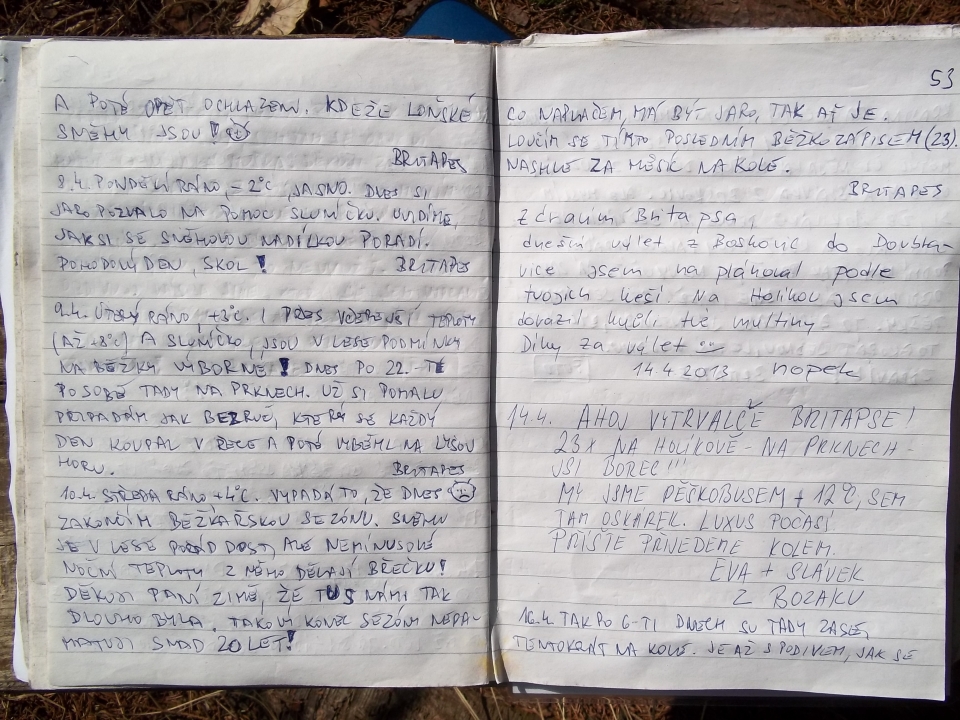 A POTÉ OPĚT OCHLAZENÍ. KDEŽE LOŇSKÉ
SNĚHY JSOU!
BRITAPES
8.4. PONDĚLÍ RÁNO, -2°C, JASNO. DNES SI
JARO POZVALO NA POMOC SLUNÍČKO. UVIDÍME,
JAK SI SE SNĚHOVOU NADÍLKOU PORADÍ.
POHODOVÝ DEN, SKOL! BRITAPES
9.4. ÚTERÝ RÁNO, +3°C. I PŘES VČEREJŠÍ TEPLOTY
(AŽ +8°C) A SLUNÍČKO, JSOU V LESE PODMÍNKY
NA BĚŽKY VÝBORNÉ! DNES PO 22. -TÉ
PO SOBĚ TADY NA PRKNECH. UŽ SI POMALU
PŘIPADÁM JAK BEZRUČ, KTERÝ SE KAŽDÝ
DEN KOUPAL V ŘECE A POTÉ VYBĚHL NA LYSOU
HORU. BRITAPES
10.4. STŘEDA RÁNO +4°C. VYPADÁ TO, ŽE DNES
ZAKONČÍM BĚŽKAŘSKOU SEZÓNU. SNĚHU
JE V LESE POŘÁD DOST, ALE NEMÍNUSOVÉ
NOČNÍ TEPLOTY Z NĚHO DĚLAJÍ BŘEČKU!
DĚKUJI PANÍ ZIMĚ, ŽE TU S NÁMI TAK
DLOUHO BYLA. TAKOVÝ KONEC SEZÓNY NEPA-
MATUJI SNAD 20 LET!
53
CO NAPLAČEM, MÁ BÝT JARO, TAK AŤ JE.
LOUČÍM SE TÍMTO POSLEDNÍM BĚŽKOZÁPISEM (23).
NASHLE ZA MĚSÍC NA KOLE.
BRITAPES
Zdravím Britapsa,
dnešní výlet z Boskovic do Doubra-
vice jsem na plánoval podle
tvojich keší. Na Holíkov jsem
dorazil kvůli tvé multiny
Díky za výlet
14.4.2013 nopek
14.4. AHOJ VYTRVALČE BRITAPSE!
23X NA HOLÍKOVĚ - NA PRKNECH -
JSI BOREC!!!
MY JSME PĚŠKOBUSEM +12°C, SEM
TAM OSKÁREK. LUXUS POČASÍ
PŘÍŠTĚ PŘIJEDEME KOLEM.
EVA + SLÁVEK
Z BOZAKU
16.4. TAK PO 6-TI DNECH SU TADY ZASE,
TENTOKRÁT NA KOLE. JE AŽ S PODIVEM, JAK SE